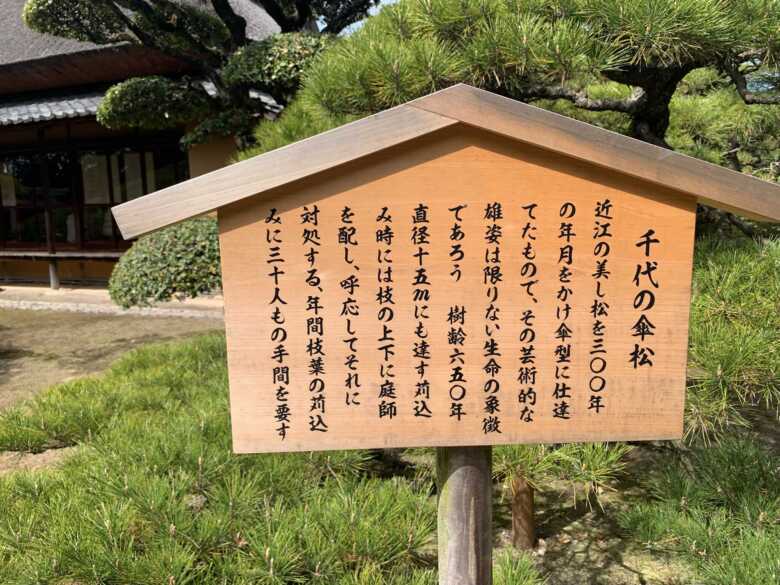 千代の傘松
近江の美し松を三〇〇年
の年月をかけ傘型に仕達
てたもので、その芸術的な
雄姿は限りない生命の象徴
であろう　樹齢六五〇年
直径十五mにも達す苅込
み時には枝の上下に庭師
を配し、呼応してそれに
対処する、年間枝葉の苅込
みに三十人もの手間を要す